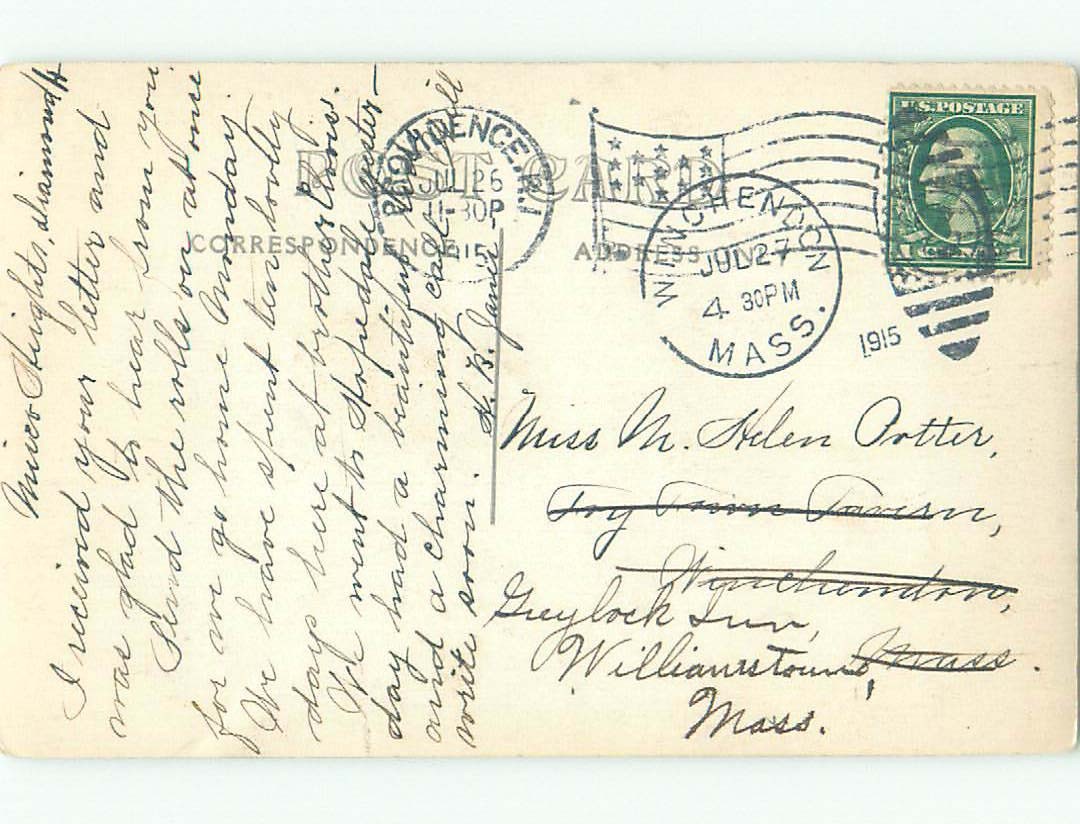 POST CARD
CORRESPONDENCE
ADDRESS ONLY
PROVIDENCE, R.I.
JUL 26
11-30P
1915
WINCHENDON
JUL 27
4 30PM
MASS.
1915
U.S. POSTAGE
1 1
Heights,
I received your letter and
was glad to hear from you.
Send the rolls on at once
for we go home Monday.
We have spent ten lovely
days here at brother's
We went to Hopedale yester-
day had a beautiful
and a charming call. Will
write soon. H. B.
Miss M. Helen Potter,
Toy Town Tavern,
Winchendon,
Mass.
Greylock Inn,
Williamstown,
Mass.